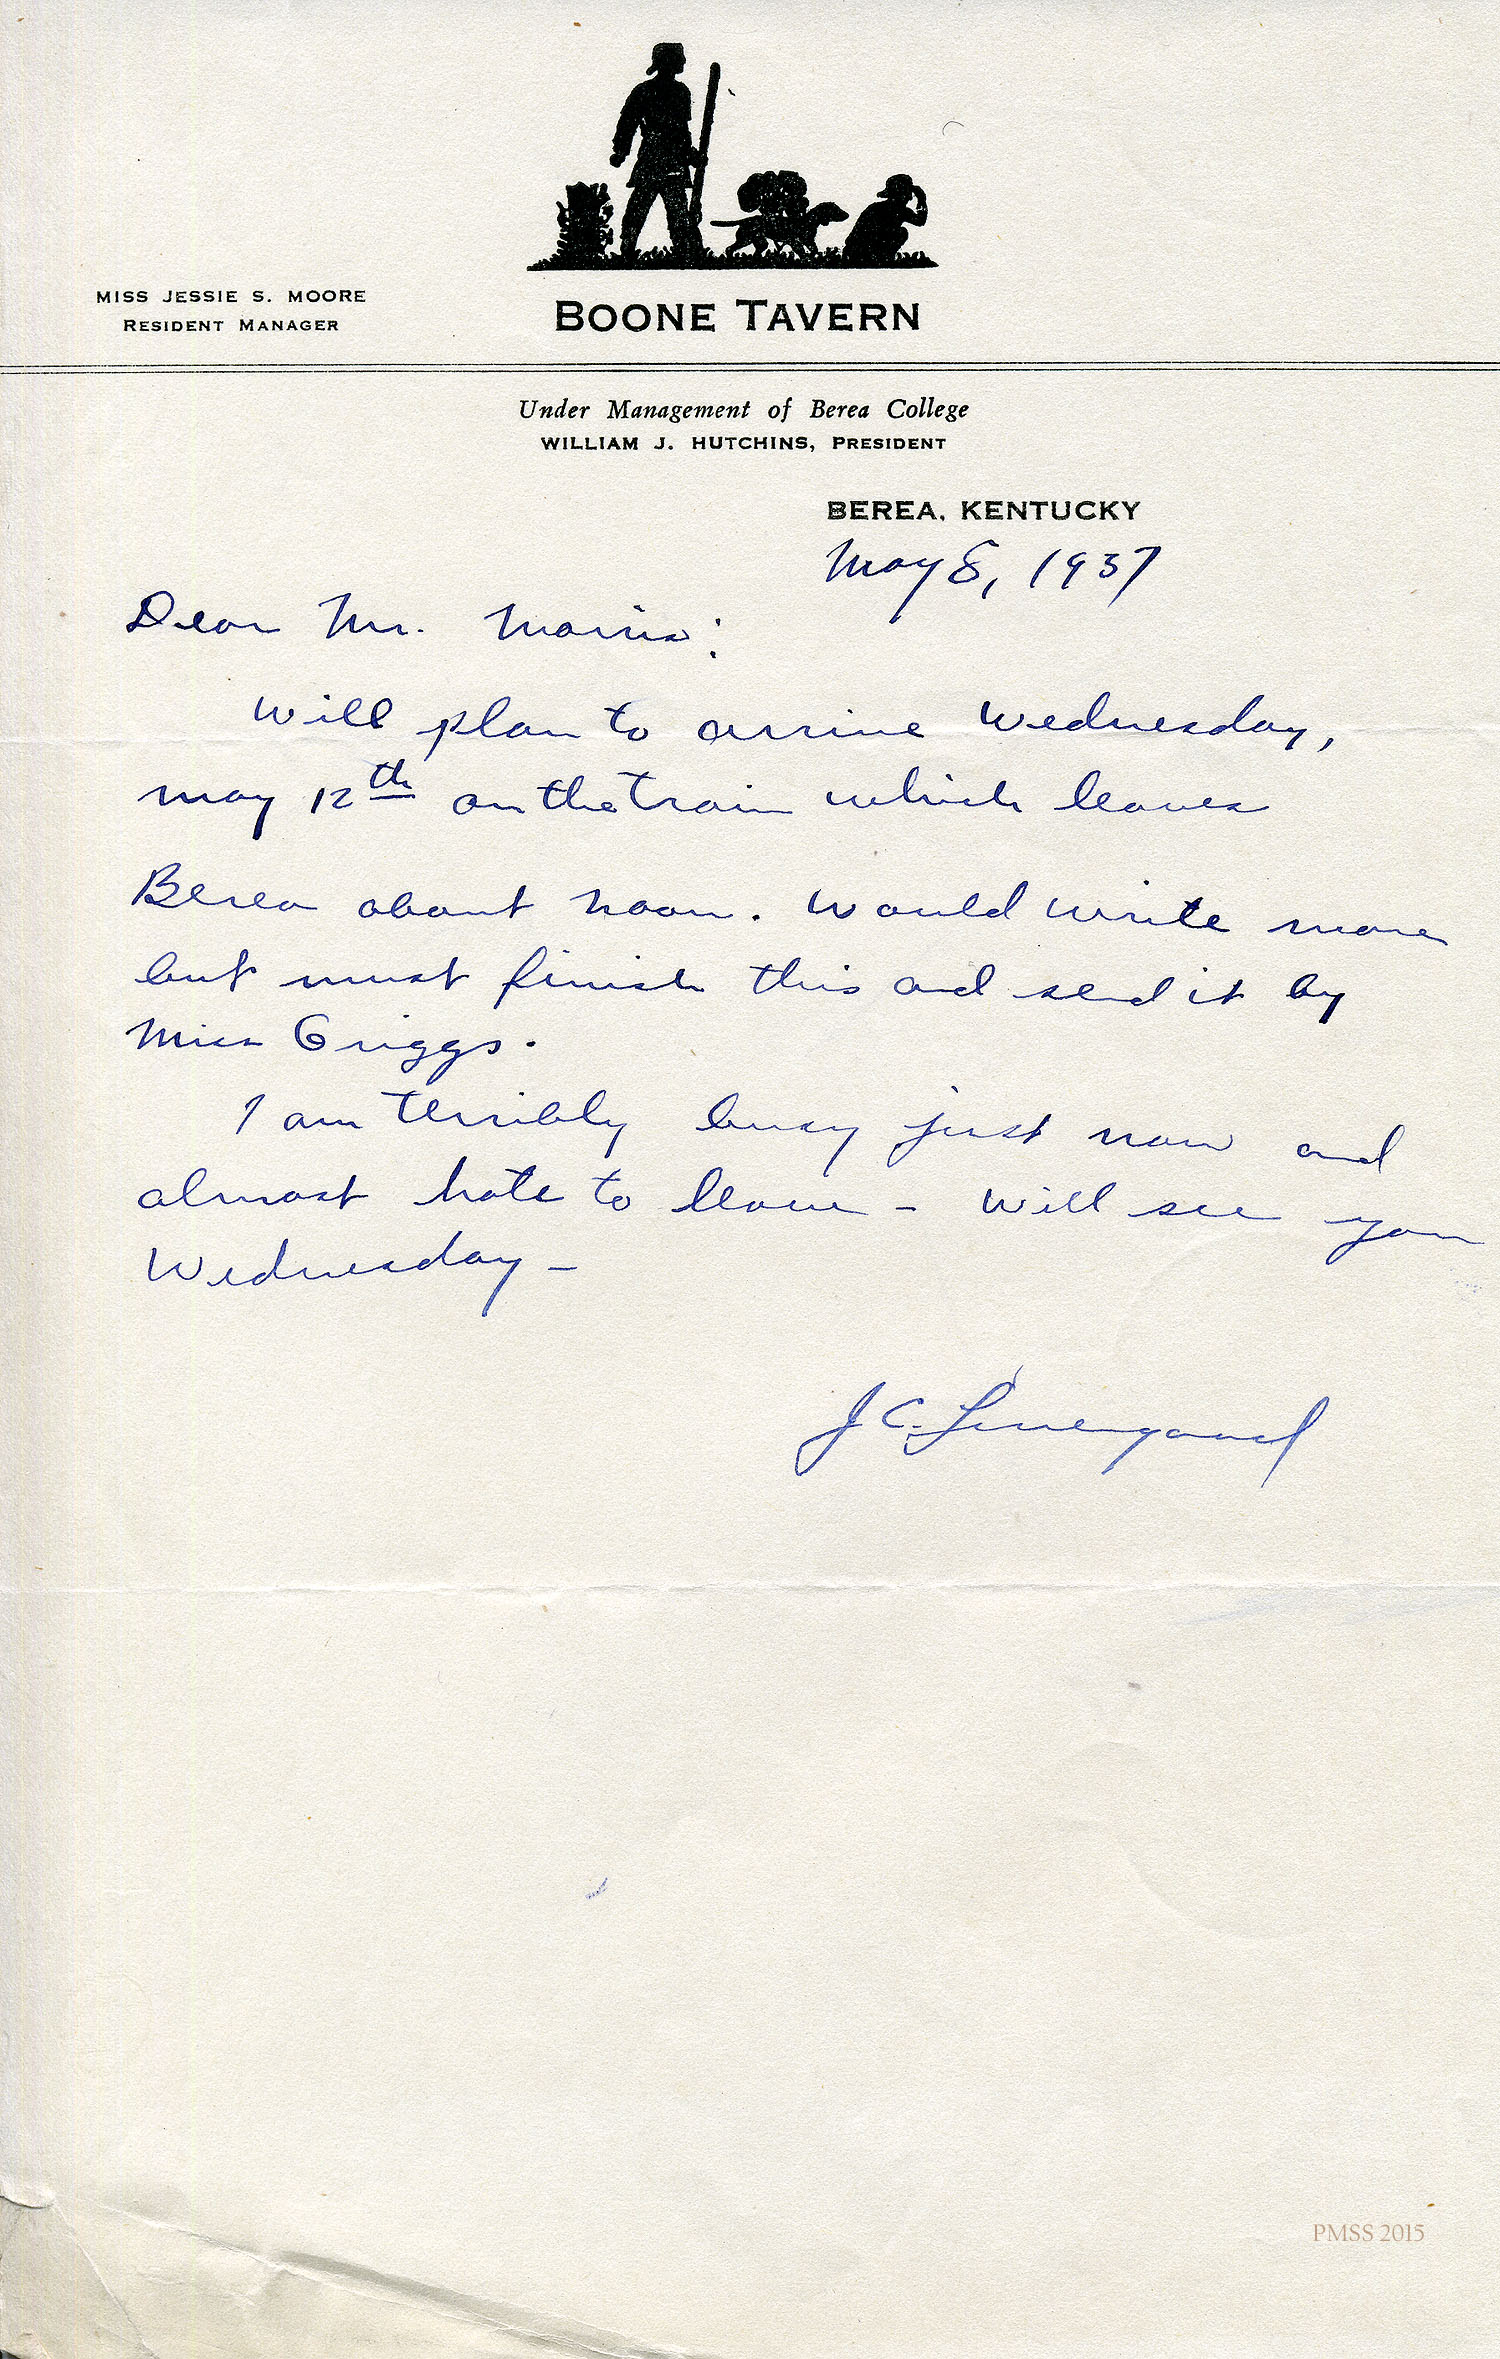 MISS JESSIE S. MOORE
RESIDENT MANAGER
BOONE TAVERN
Under Management of Berea College
WILLIAM J. HUTCHINS, PRESIDENT
BEREA, KENTUCKY
May 8, 1937
Dear Mr. Morris:
Will plan to arrive Wednesday,
May 12th on the train which leaves
Berea about noon. Would write more
but must finish this and send it by
Miss Griggs.
I am terribly busy just now and
almost hate to leave - Will see you
Wednesday -
J C.
PMSS 2015